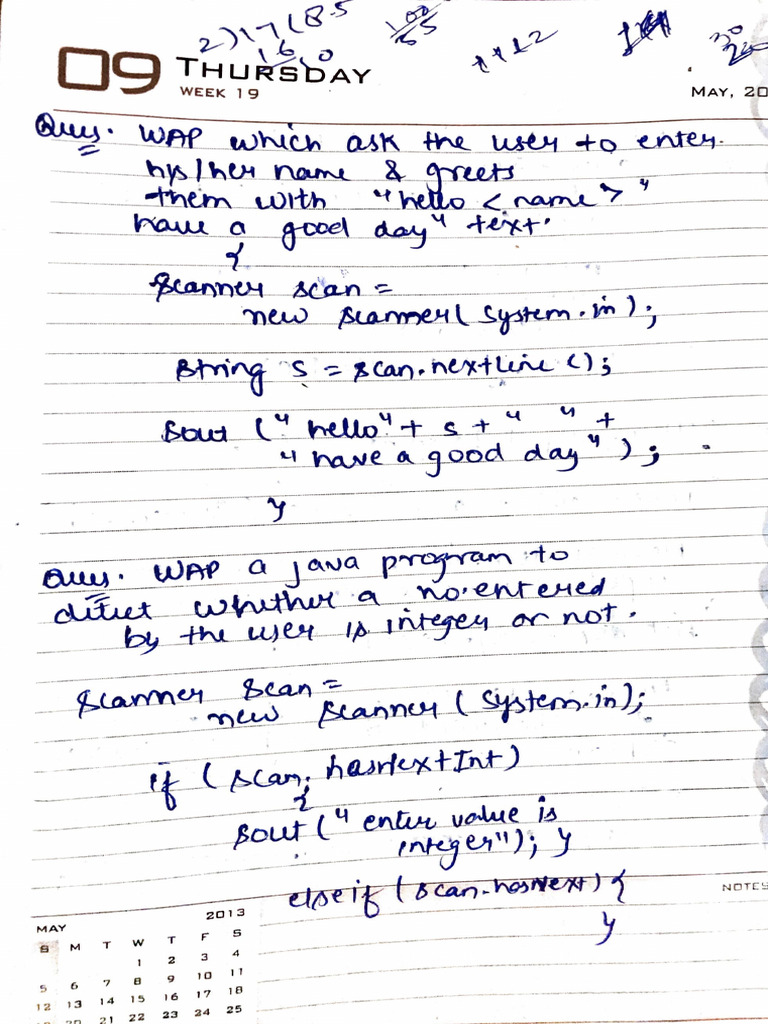 2)17(8.5
16
0
100
55
++12
30
09 THURSDAY
WEEK 19
MAY, 20
Ques. WAP which ask the user to enter
his/her name & greets
them with "hello <name>"
have a good day" text.
{
Scanner scan =
new Scanner(System.in);
String s = scan.nextLine();
Sout ("hello" + s + " " +
"have a good day");
}
Ques. WAP a java program to
ditict whether a no. entered
by the user is integer or not.
Scanner scan =
new Scanner(System.in);
if (scan. hasNextInt)
{
Sout ("enter value is
integer"); }
elseif (scan.hasNext) {
}
NOTES
MAY 2013
S M T W T F S
1 2 3 4
5 6 7 8 9 10 11
12 13 14 15 16 17 18
20 21 22 23 24 25